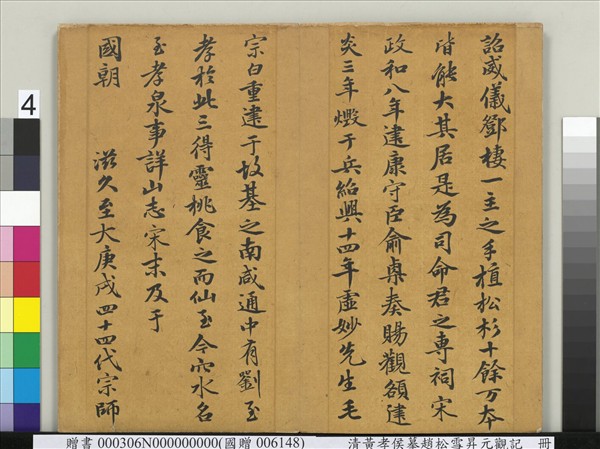 詔威儀鄧棲一主之手植松杉十餘万本
皆能大其居是為司命君之專祠宋
政和八年建康守臣俞㮚奏賜觀額建
炎三年燬于兵紹興十四年虛妙先生毛
宗白重建于故基之南咸通中有劉至
孝於此三得靈桃食之而仙至今穴水名
至孝泉事詳山志宋末及于
國朝
滋久至大庚戌四十四代宗師
4
贈書 000306N000000000(國贈 006148)
清黃孝侯摹趙松雪昇元觀記 冊